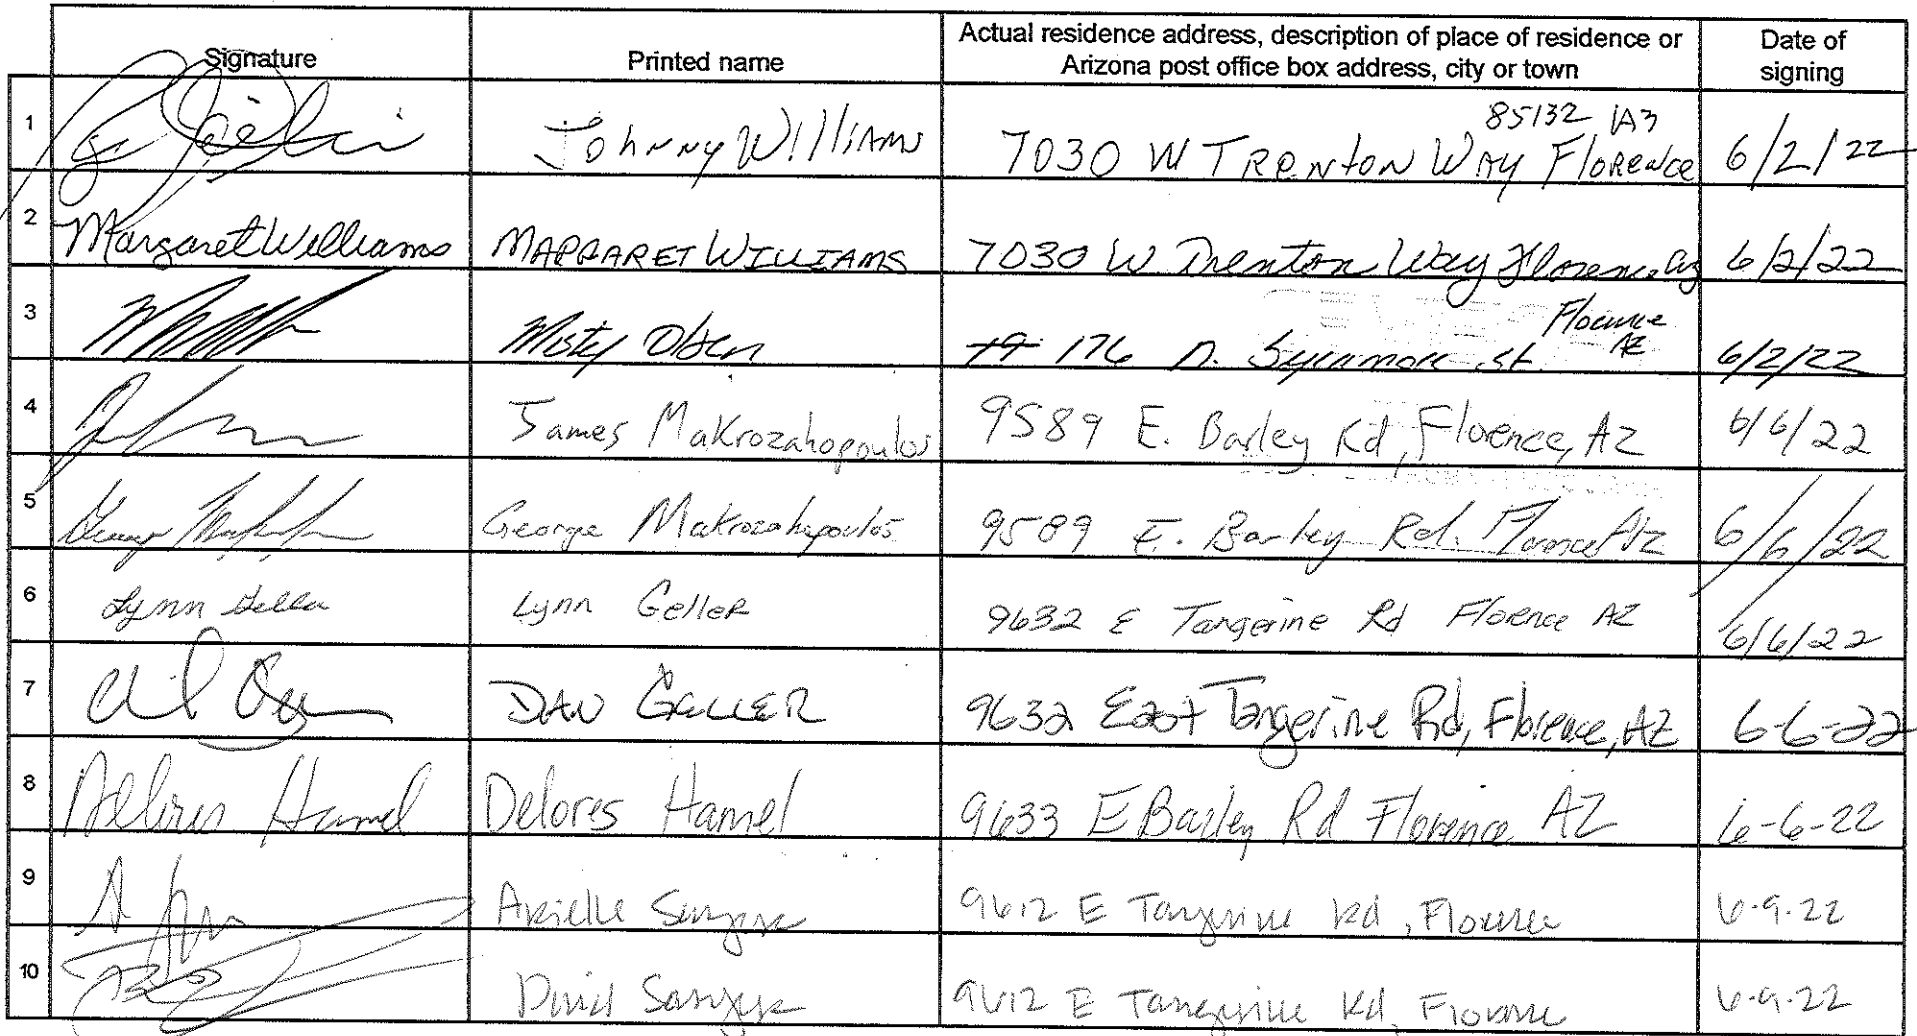 Signature
Printed name
Actual residence address, description of place of residence or
Arizona post office box address, city or town
Date of
signing
1
Johnny Williams
85132 
7030 W Trenton Way Florence
6/2/22
2
Margaret Williams
MARGARET WILLIAMS
7030 W Trenton Way Florence az
6/2/22
3
Misty Olsen
176 N. Sycamore St
Florence
AZ
6/2/22
4
James Makrozahopoulos
9589 E. Barley Rd, Florence, AZ
6/6/22
5
George Makrozahopoulos
9589 E. Barley Rd. Florence Az
6/6/22
6
Lynn Geller
Lynn Geller
9632 E Tangerine Rd Florence AZ
6/6/22
7
DAN GELLER
9632 East Tangerine Rd, Florence, AZ
6-6-22
8
Delores Hamel
Delores Hamel
9633 E Barley Rd Florence AZ
6-6-22
9
Arielle
9612 E Tangerine Rd, Florence
6-9-22
10
David
9612 E Tangerine Rd, Florence
6-9-22